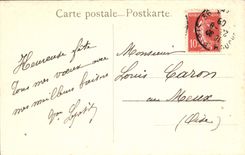 Carte postale Postkarte
Heureuse fête
Tous mes vœux avec
mes meilleurs baisers
Monsieur
Louis Caron
au Meux
(Oise)
10